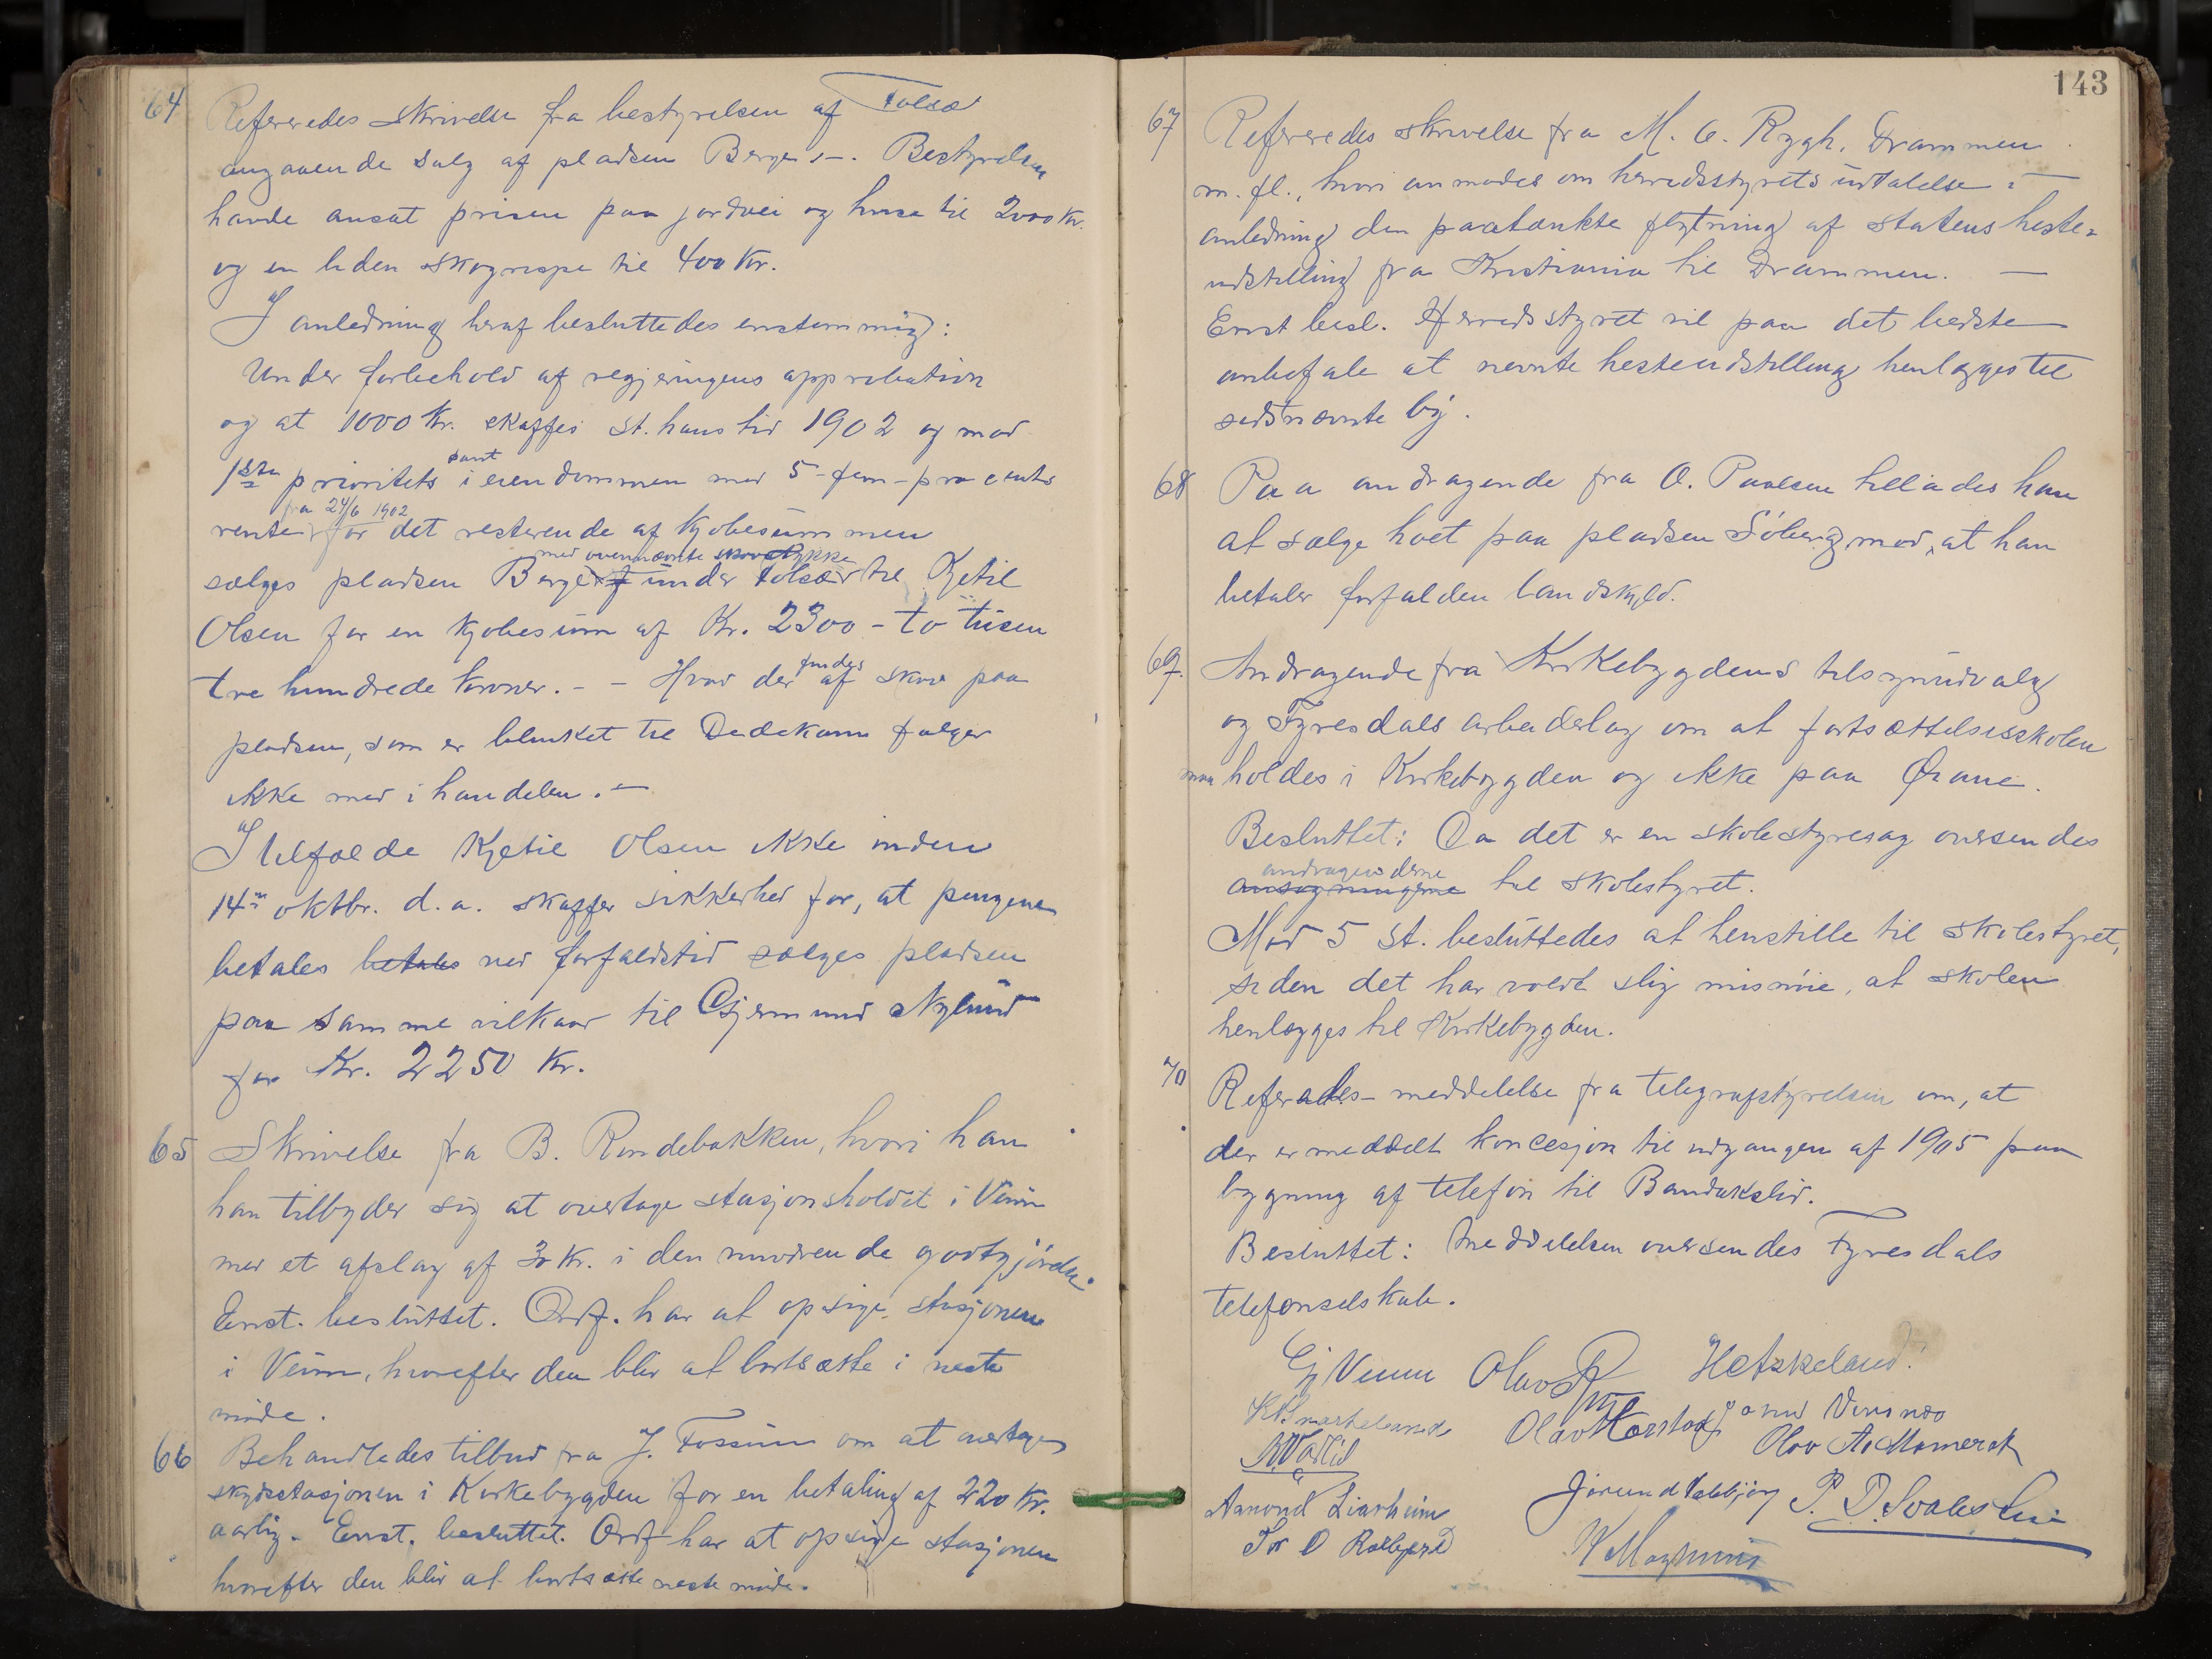 64 Refereredes skrivelse fra bestyrelsen af Folsæ
angaaende salg af pladsen Berge -. Bestyrelsen
havde ansat prisen paa jordvei og huse til 2000 kr.
og en liden skogrespe til 400 kr.
I anledning heraf besluttedes enstemmig:
Under forbehold af regjeringens approbation
og at 1000 kr. skaffes St. hans tid 1902 og mod
1ste prioritets pant i eiendommen med 5 - fem - procents
rente fra 24/6 1902 for det resterende af kjøbesummen
sælges pladsen Berge med ovennævnte skovstykke under Folsæ til Kjetil
Olsen for en kjøbesum af Kr. 2300 - to tusen
tre hundrede kroner. - - Hvad der findes af skov paa
pladsen, som er blinket til Dedekam følger
ikke med i handelen. -
I tilfælde Kjetil Olsen ikke inden
14de oktbr. d. a. skaffer sikkerhed for, at pengene
betales betales ved forfaldstid sælges pladsen
paa samme vilkaar til Gjermund Nylund
for Kr. 2250 kr.
65 Skrivelse fra B. Rindebakken, hvori han
han tilbyder sig at overtage stasjonsholdet i Veum
med et afslag af 30 kr. i den nuværende godtgjørelse.
Enst. besluttet. Ordf. har at opsige stasjonen
i Veum, hvorefter den blir at bortsætte i neste
møde.
66 Behandledes tilbud fra J. Fossum om at overtage
skydsstasjonen i Kirkebygden for en betaling af 220 kr.
aarlig. Enst. besluttet. Ordf har at opsige stasjonen
hvorefter den blir at bortsætte neste møde.
143
67 Refereredes skrivelse fra M. O. Rygh, Drammen
m. fl., hvori anmodes om herredsstyrets udtalelse i
anledning den paatænkte flytning af statens heste=
udstilling fra Kristiania til Drammen. -
Enst besl. Herredsstyret vil paa det bedste
anbefale at nevnte hesteudstilling henlægges til
sidstnævnte by.
68 Paa andragende fra O. Paalsen tillades han
at sælge høet paa pladsen Søberg mod, at han
betaler forfalden landskyld.
69. Andragende fra Kirkebygdens tilsynsudvalg
og Fyresdals arbeiderlag om at fortsættelsesskolen
maa holdes i Kirkebygden og ikke paa Øiane.
Besluttet: Da det er en skolestyresag oversendes
ansøgningerne andragenderne til skolestyret.
Mod 5 st. besluttedes at henstille til skolestyret,
siden det har voldt slig misnøie, at skolen
henlægges til Kirkebygden.
70 Referedes meddelelse fra telegrafstyrelsen om, at
der er meddelt koncesjon til udgangen af 1905 paa
bygning af telefon til Bandakslid.
Besluttet: Meddelelsen oversendes Fyresdals
telefonselskab.
Gj Veum Olav
Aamond Liarheim
Tor O